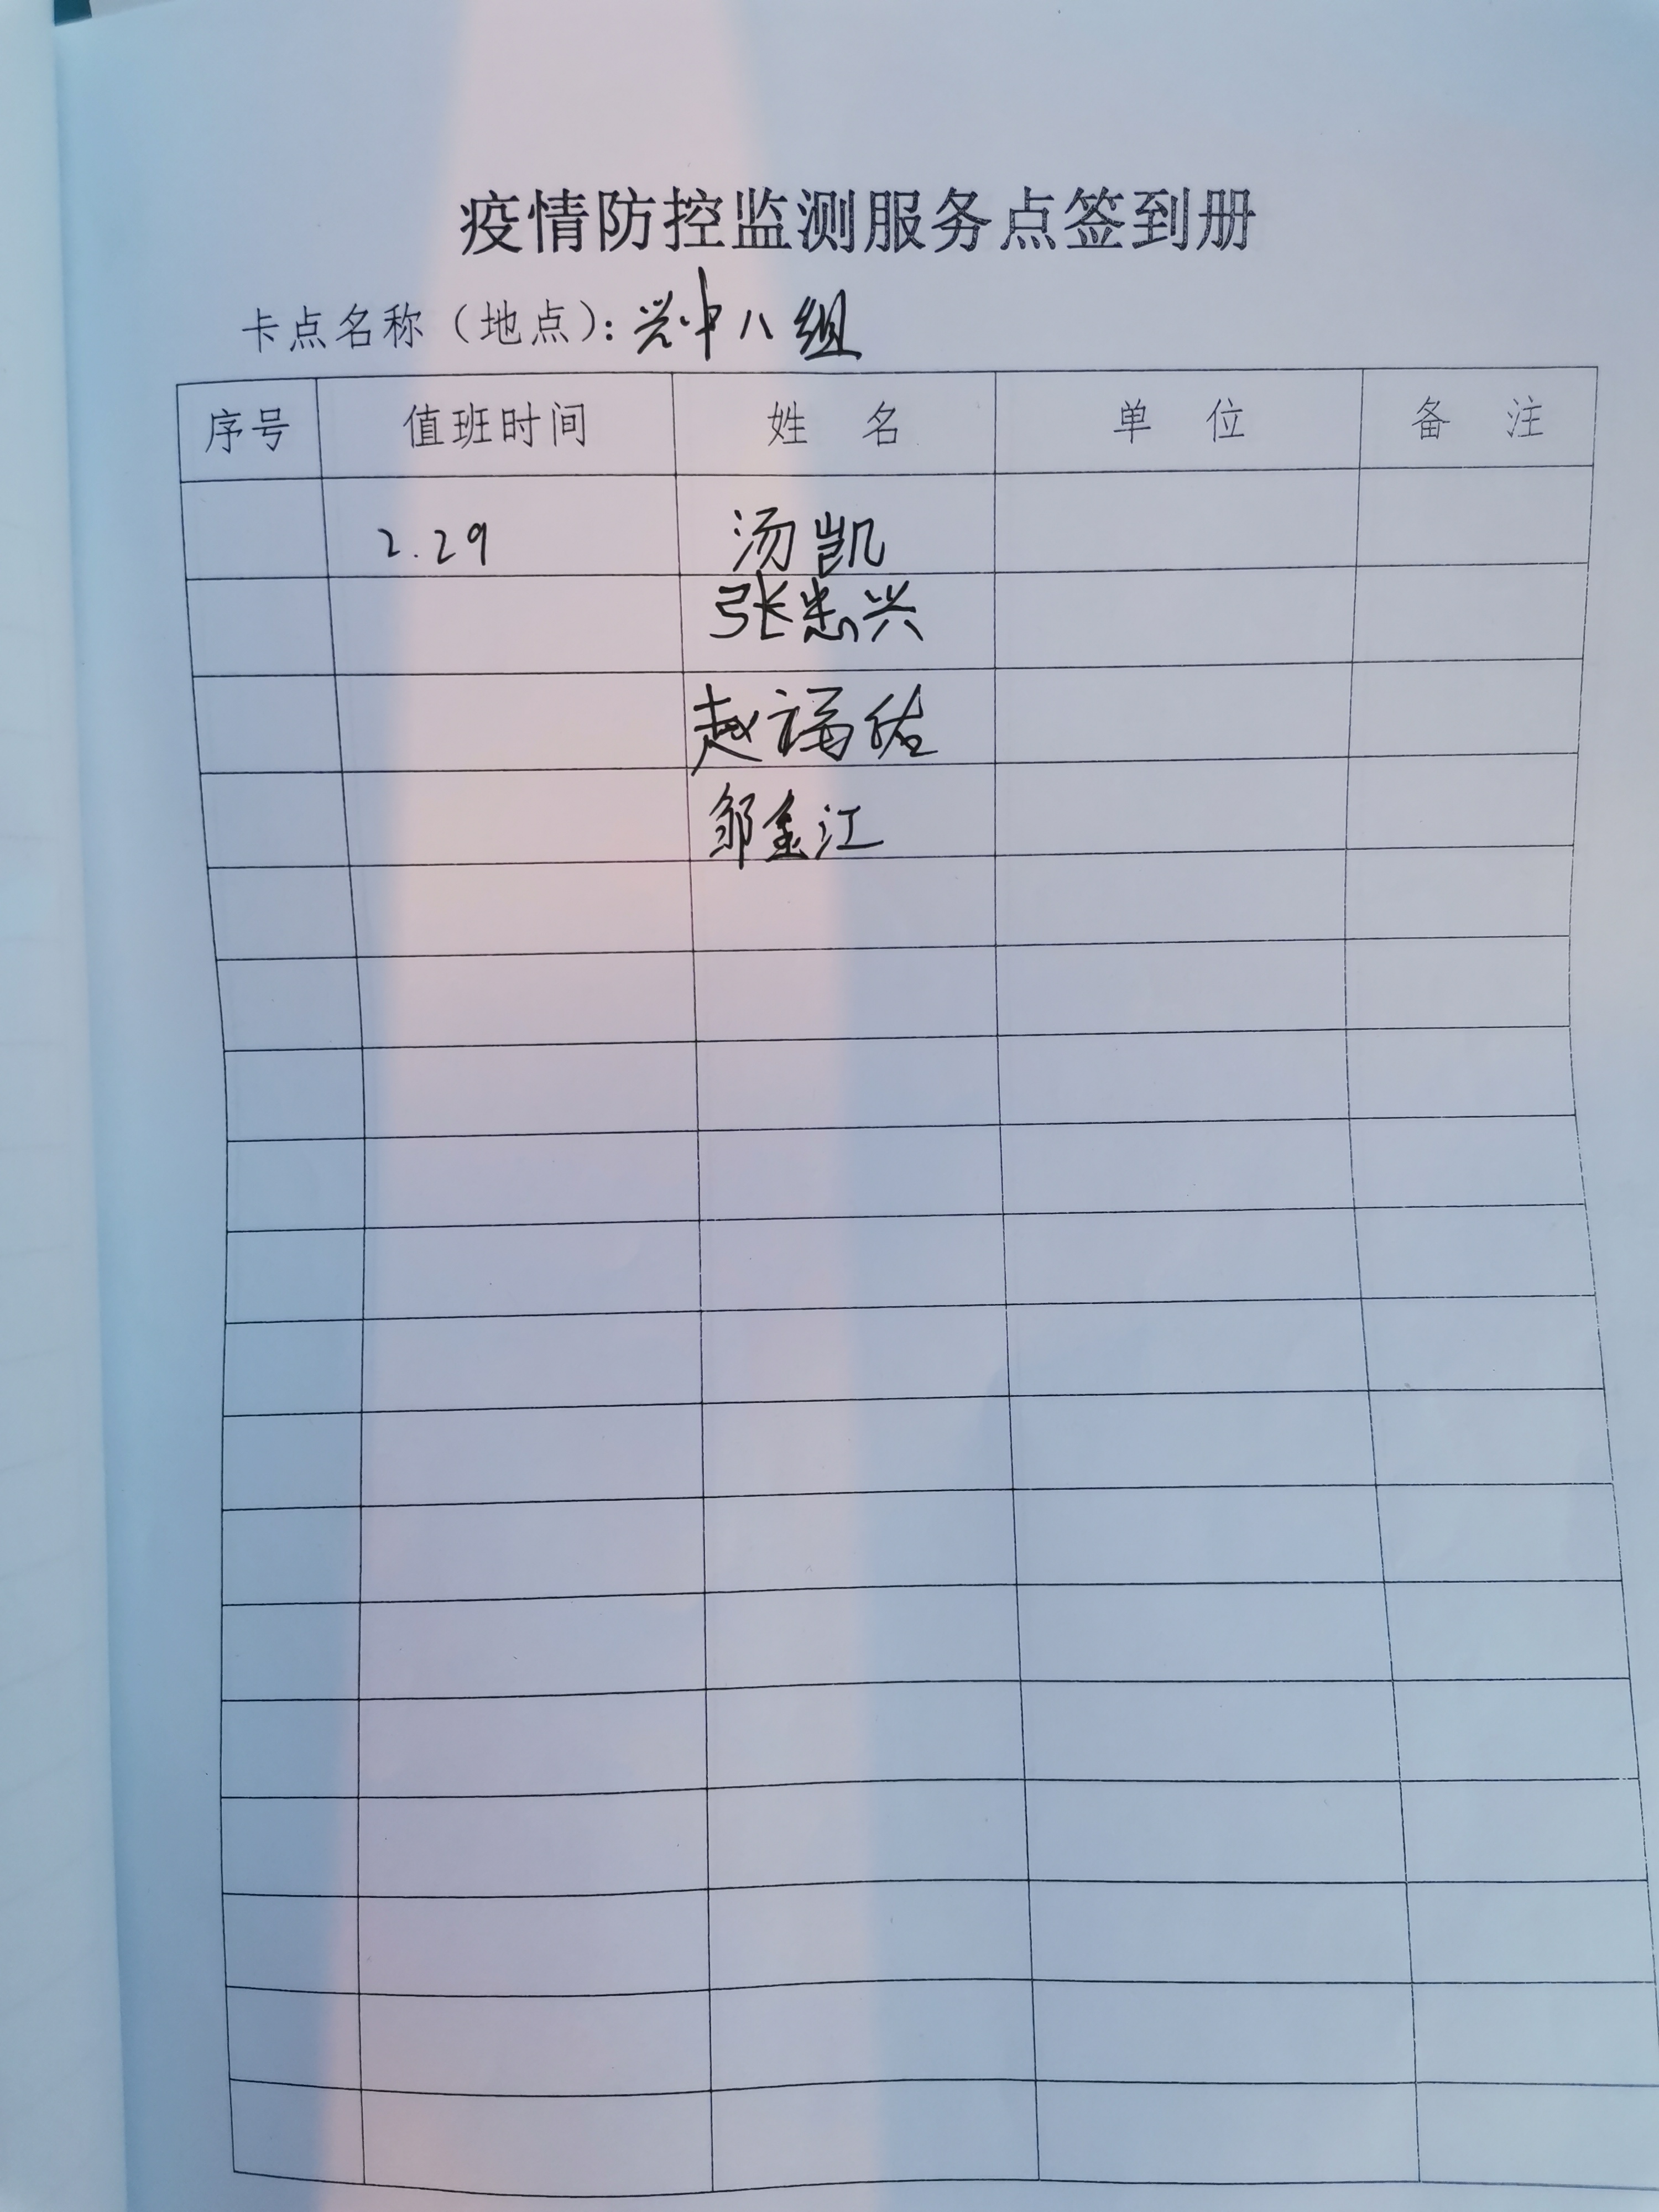 疫情防控监测服务点签到册
卡点名称（地点）：兴中八组
序号 值班时间 姓 名 单 位 备 注
2.29 汤凯
张忠兴
赵福佑
邹金江